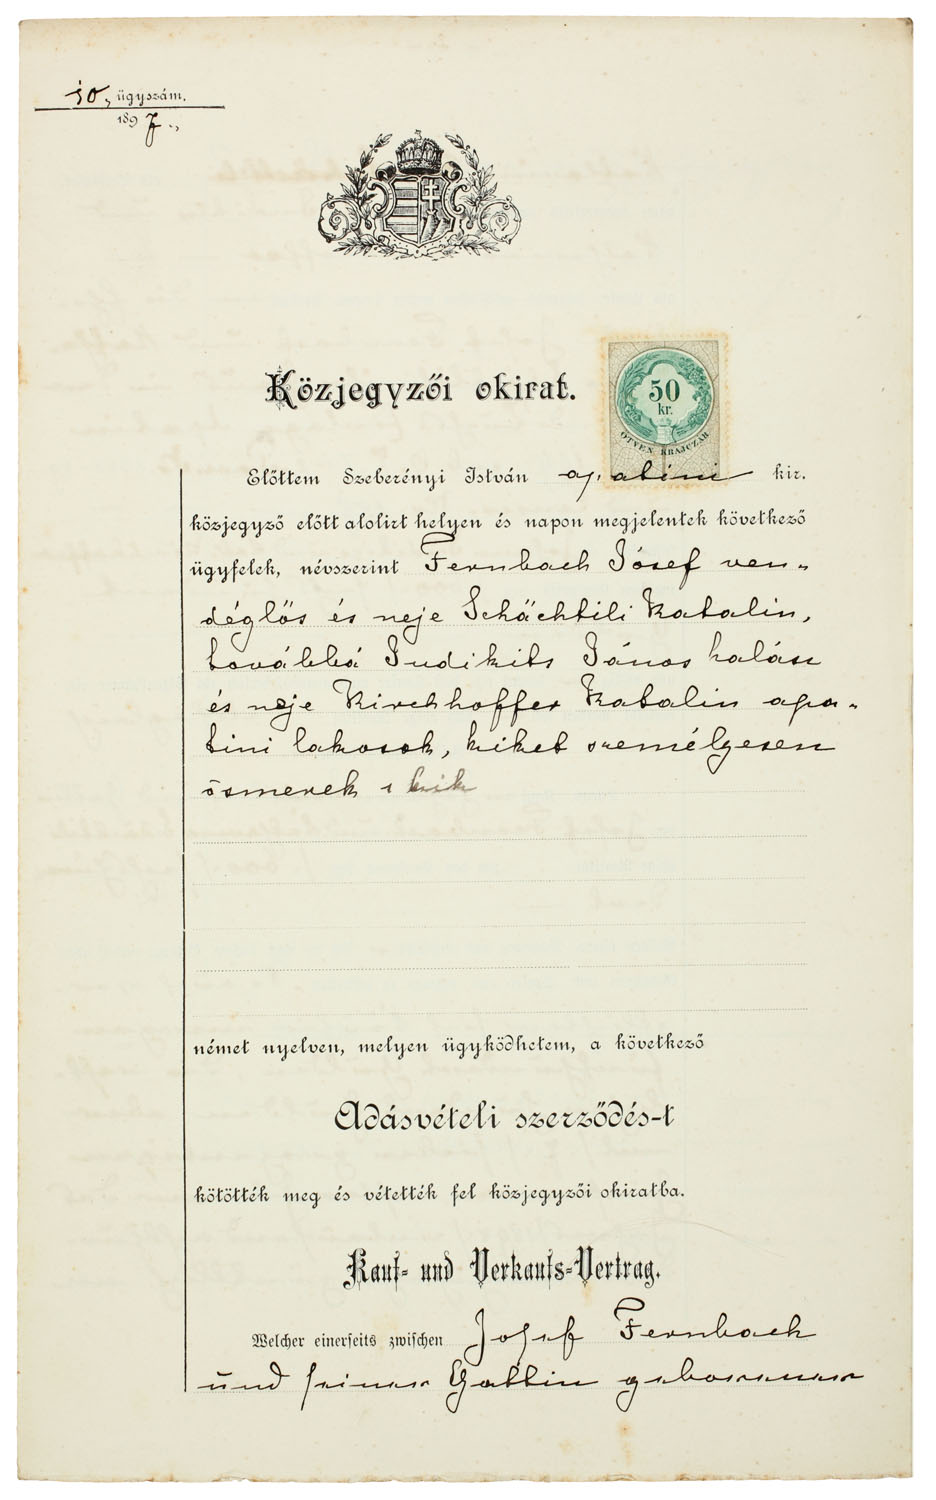 10, ügyszám.
1897.,
Közjegyzői okirat.
50
kr.
ÖTVEN KRAJCZÁR
Előttem Szeberényi István apatini kir.
közjegyző előtt alolirt helyen és napon megjelentek következő
ügyfelek, névszerint Fernbach Józef ven-
déglős és neje Schächtili Katalin,
továbbá Judikits János halász
és neje Kirchhoffer Katalin apa-
tini lakosok, kiket személyesen
ösmerek s kik
német nyelven, melyen ügyködhetem, a következő
Adásvételi szerződés-t
kötötték meg és vétették fel közjegyzői okiratba.
Kauf- und Verkaufs-Vertrag.
Welcher einerseits zwischen Josef Fernbach
und seiner Gattin geborener